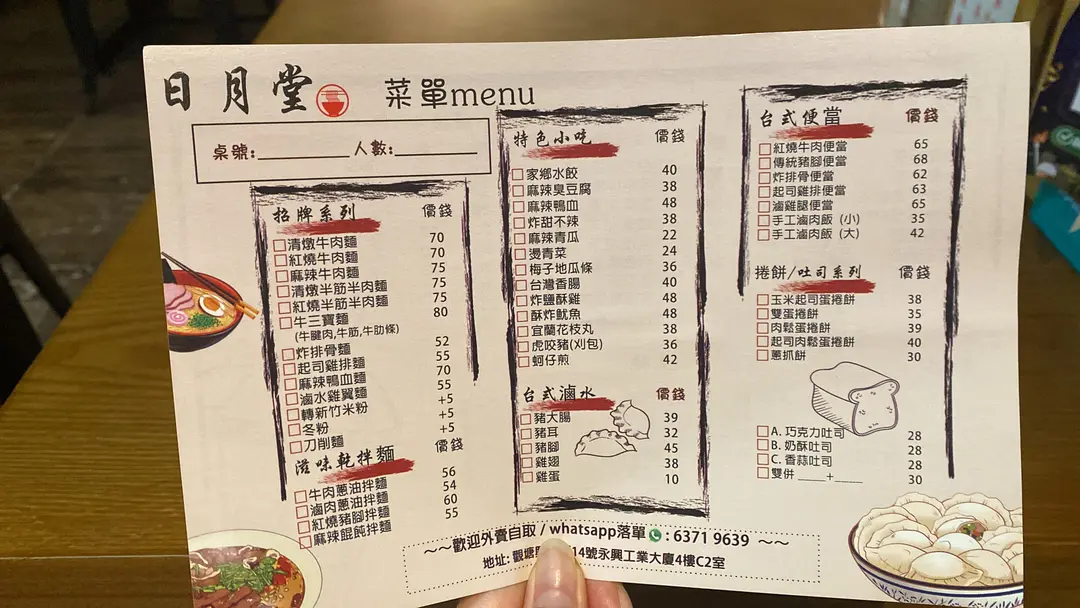 日月堂
菜單menu
桌號:__________人數:__________
招牌系列 價錢
清燉牛肉麵 70
紅燒牛肉麵 70
麻辣牛肉麵 75
清燉半筋半肉麵 75
紅燒半筋半肉麵 75
牛三寶麵 80
(牛腱肉,牛筋,牛肋條)
炸排骨麵 52
起司雞排麵 55
麻辣鴨血麵 70
滷水雞翼麵 55
轉新竹米粉 +5
冬粉 +5
刀削麵 +5
滋味乾拌麵 價錢
牛肉蔥油拌麵 56
滷肉蔥油拌麵 54
紅燒豬腳拌麵 60
麻辣餛飩拌麵 55
特色小吃 價錢
家鄉水餃 40
麻辣臭豆腐 38
麻辣鴨血 48
炸甜不辣 38
麻辣青瓜 22
燙青菜 24
梅子地瓜條 36
台灣香腸 40
炸鹽酥雞 48
酥炸魷魚 48
宜蘭花枝丸 38
虎咬豬(刈包) 36
蚵仔煎 42
台式滷水 價錢
豬大腸 39
豬耳 32
豬腳 45
雞翅 38
雞蛋 10
台式便當 價錢
紅燒牛肉便當 65
傳統豬腳便當 68
炸排骨便當 62
起司雞排便當 63
滷雞腿便當 65
手工滷肉飯 (小) 35
手工滷肉飯 (大) 42
捲餅/吐司系列 價錢
玉米起司蛋捲餅 38
雙蛋捲餅 35
肉鬆蛋捲餅 39
起司肉鬆蛋捲餅 40
蔥抓餅 30
A. 巧克力吐司 28
B. 奶酥吐司 28
C. 香蒜吐司 28
雙併 ____+____ 30
~~歡迎外賣自取 / whatsapp落單 : 6371 9639 ~~
地址: 觀塘 14號永興工業大廈4樓C2室